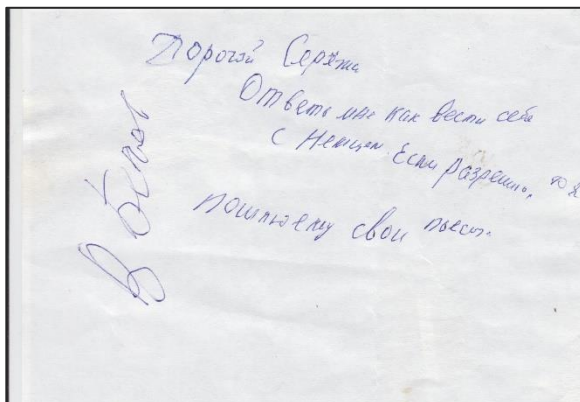 Дорогой Серёжа
Ответь мне как вести себя
с Немцем. Если разрешишь, то я
пошлю ему свои пьесы.
В Белов